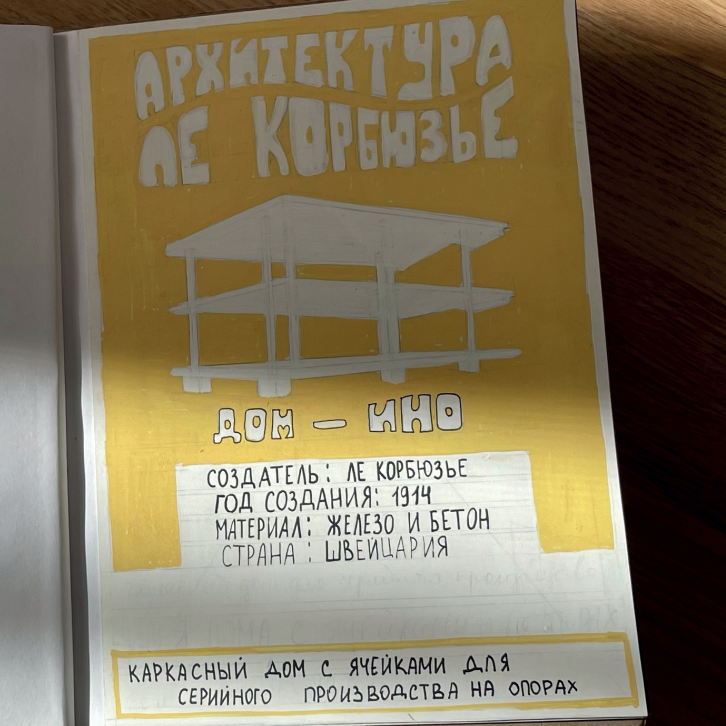 АРХИТЕКТУРА
ЛЕ КОРБЮЗЬЕ
ДОМ – ИНО
СОЗДАТЕЛЬ: ЛЕ КОРБЮЗЬЕ
ГОД СОЗДАНИЯ: 1914
МАТЕРИАЛ: ЖЕЛЕЗО И БЕТОН
СТРАНА : ШВЕЙЦАРИЯ
КАРКАСНЫЙ ДОМ С ЯЧЕЙКАМИ ДЛЯ
СЕРИЙНОГО ПРОИЗВОДСТВА НА ОПОРАХ